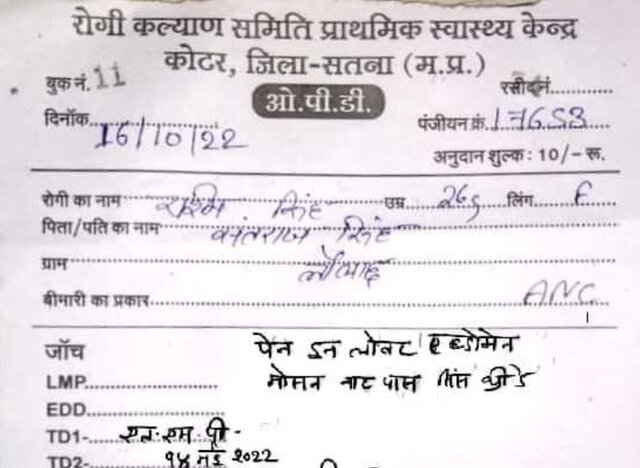 रोगी कल्याण समिति प्राथमिक स्वास्थ्य केन्द्र
कोटर, जिला-सतना (म.प्र.)
बुक नं. 11
रसीद नं.
ओ.पी.डी.
दिनाँक 16/10/22
पंजीयन क्रं. 17653
अनुदान शुल्क: 10/- रू.
रोगी का नाम रश्मि सिंह उम्र 26 लिंग F
पिता/पति का नाम सिंह
ग्राम
बीमारी का प्रकार ANC
जॉंच पेन इन लोवर एब्डोमेन
LMP. मोसन नाट पास सिंस थ्री डे
EDD.
TD1- एल. एम. पी -
TD2- १४ मई २०२२